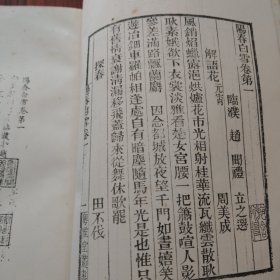 陽春白雪卷第一
臨濮 趙 聞禮 立之選
解語花 元宵 周美成
風銷焰蠟露浥烘爐花市光相射桂華流瓦纖雲散耿
耿素娥欲下衣裳淡雅看楚女宮腰一把簫鼓喧人影
參差滿路飄香麝 因念都城放夜望千門如晝嬉笑
遊冶鈿車羅帕相逢處自有暗塵隨馬年光是也惟只
有舊情衰謝清漏移飛蓋歸來從舞休歌罷
探春 田不伐
陽春白雪卷第一